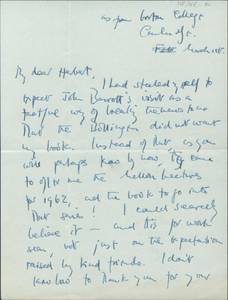 as from Girton College
Cambridge.
March 1st.
My dear Herbert,
I had steeled myself to
expect John Barrett's visit as a
tactful way of breaking the news to me
that the Bollingen did not want
my book. Instead of that, as you
will perhaps know by now, he came
to offer me the Mellon Lectures
for 1962, and the book to go into
that series! I could scarcely
believe it — and this for work
seen, not just on the expectation
raised by kind friends. I don't
know how to thank you for your